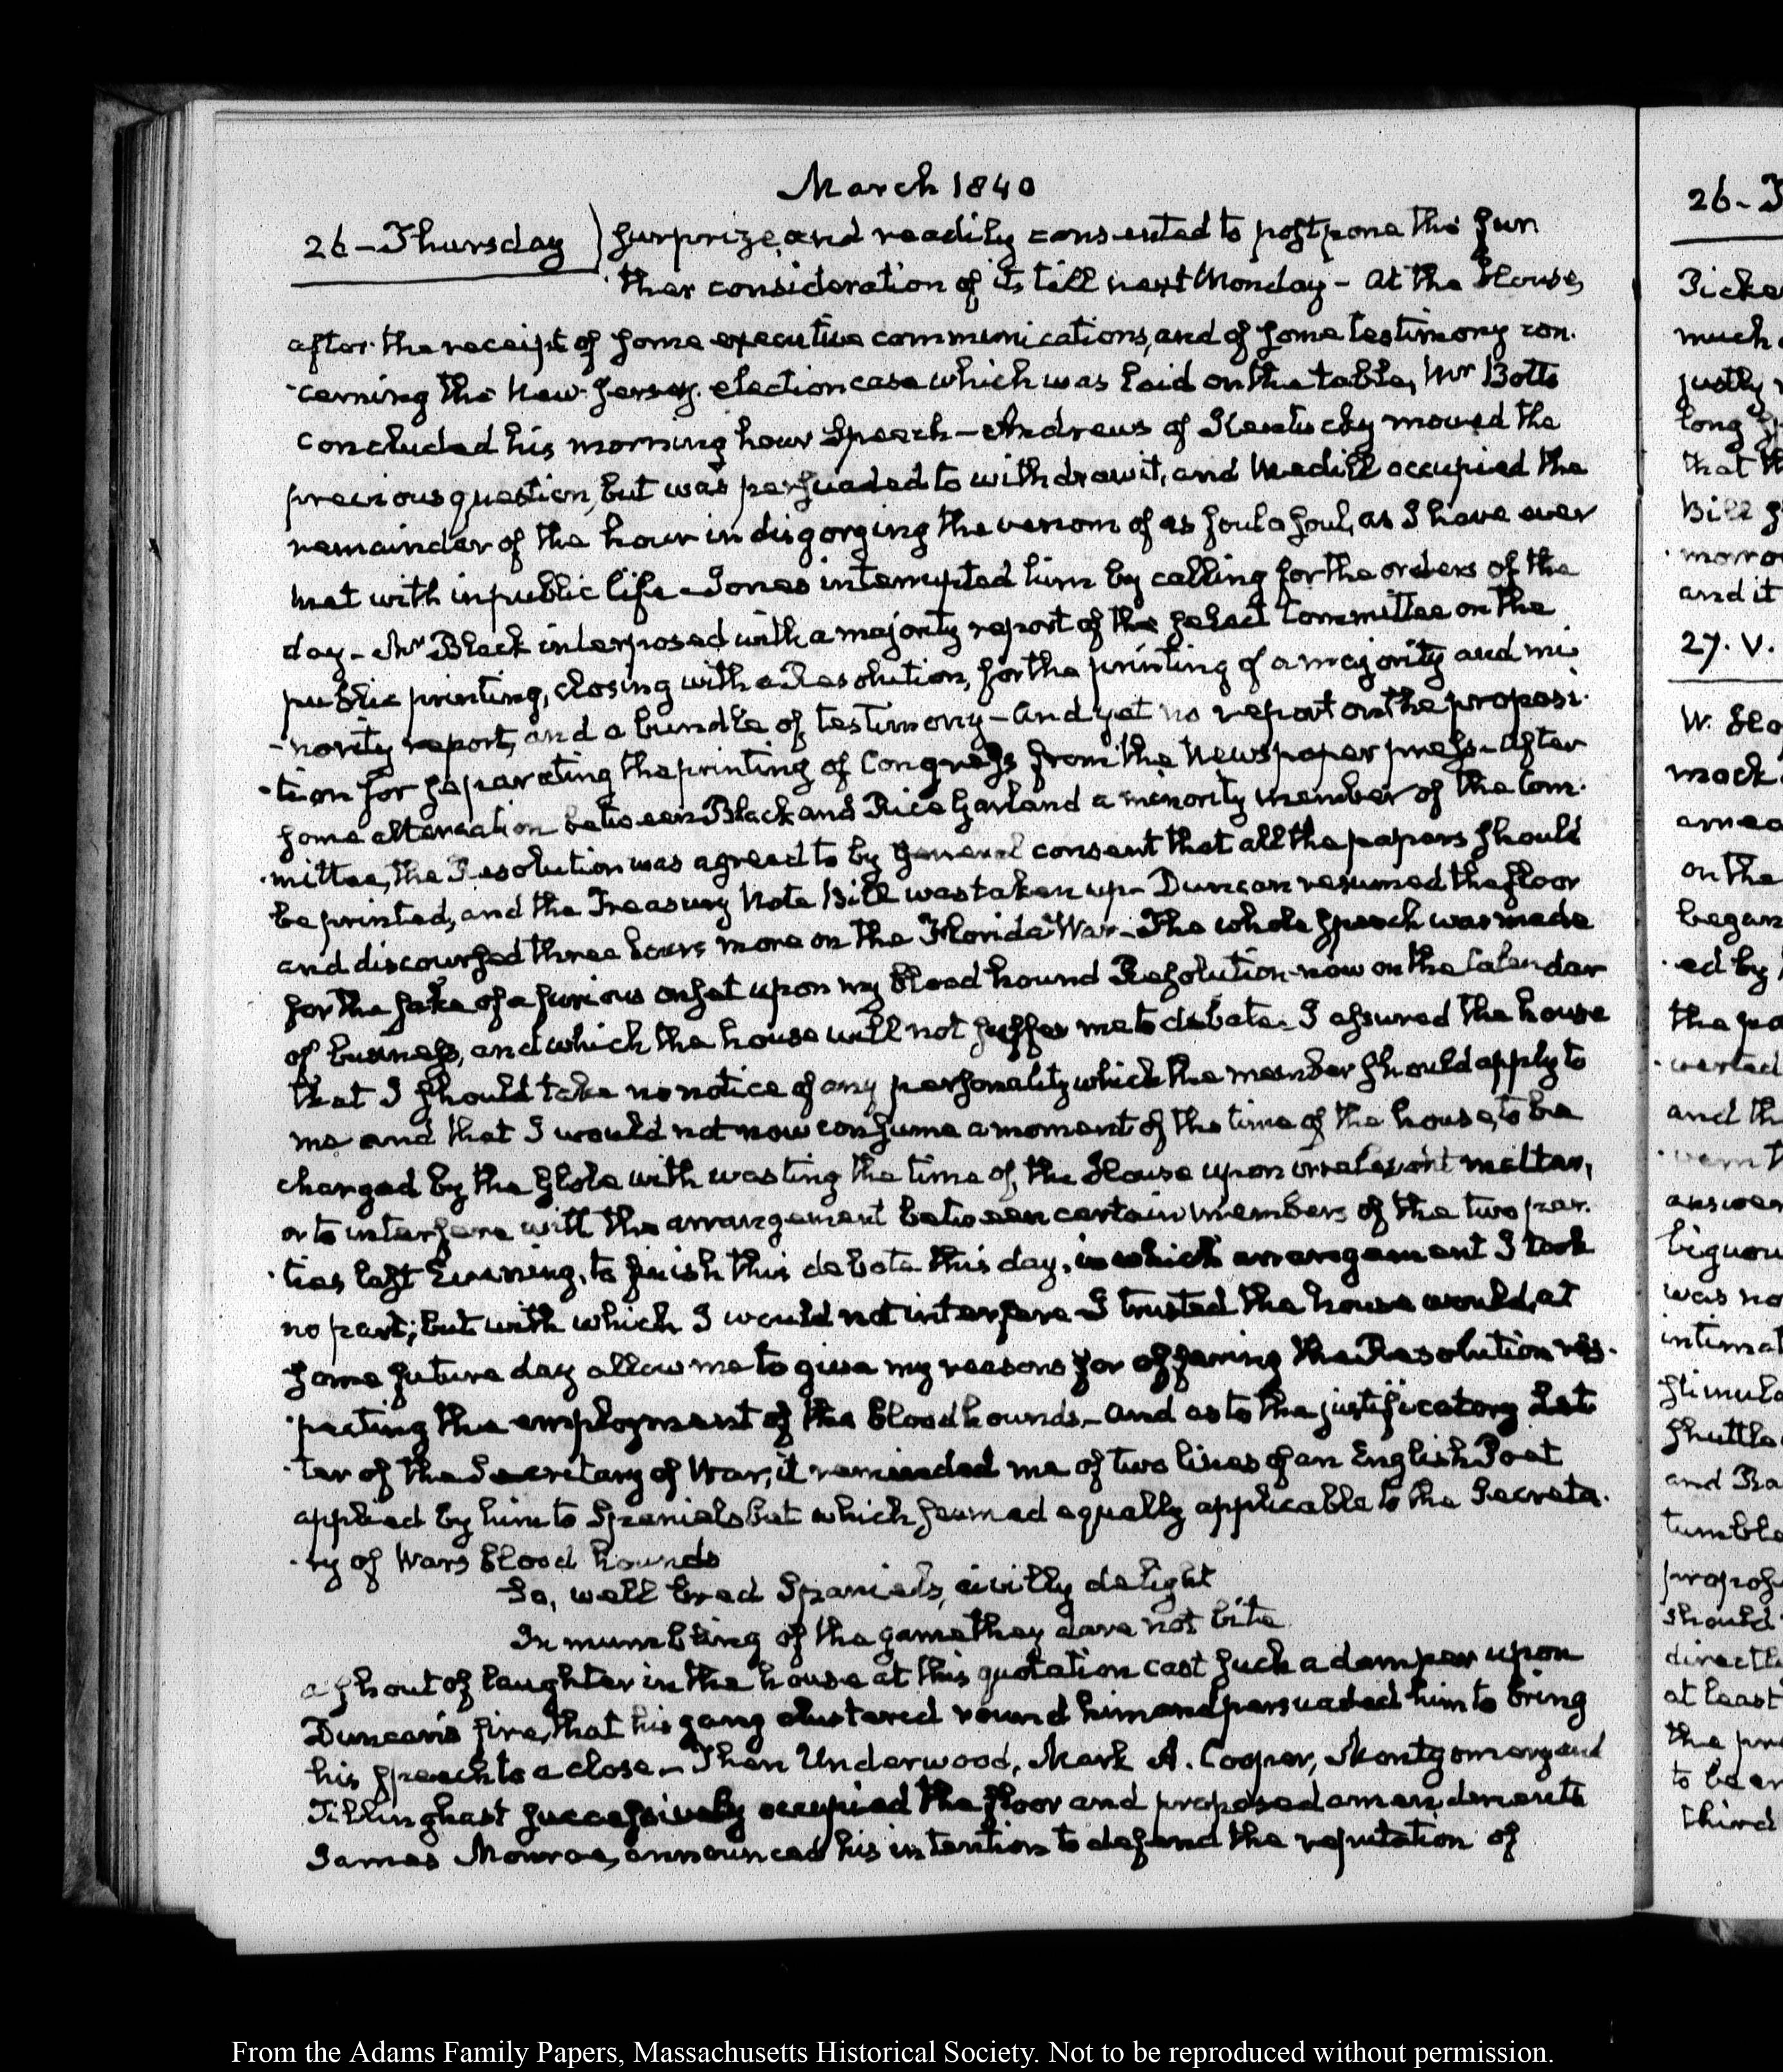 March 1840
26 - Thursday
surprize, and readily consented to postpone the fur
ther consideration of it, till next Monday - At the House,
after the receipt of some executive communications, and of some testimony con-
-cerning the New-Jersey election case which was laid on the table, Mr Botts
concluded his morning hour Speech - Andrews of Kentucky moved the
previous question, but was persuaded to withdraw it, and Medill occupied the
remainder of the hour in disgorging the venom of as foul a soul, as I have ever
met with in public life - Jones interrupted him by calling for the orders of the
day - Mr Black interposed with a majority report of the select Committee on the
public printing, closing with a Resolution, for the printing of a majority and mi-
-nority report, and a bundle of testimony - And yet no report on the proposi-
-tion for separating the printing of Congress from the Newspaper press - After
some altercation between Black and Rice Garland a minority member of the Com-
-mittee, the Resolution was agreed to by general consent that all the papers should
be printed, and the Treasury Note Bill was taken up - Duncan resumed the floor
and discoursed three hours more on the Florida War - The whole speech was made
for the sake of a furious onset upon my blood hound Resolution now on the Calendar
of business, and which the house will not suffer me to debate. I assured the house
that I should take no notice of any personality which the member should apply to
me and that I would not now consume a moment of the time of the house, to be
charged by the Globe with wasting the time of the House upon irrelevant matter,
or to interfere with the arrangement between certain members of the two par-
-ties last Evening, to finish this debate this day, in which arrangement I took
no part; but with which I would not interfere - I trusted the house would, at
some future day allow me to give my reasons for offering the Resolution res-
-pecting the employment of the blood hounds - And as to the justificatory Let-
-ter of the Secretary of War, it reminded me of two lines of an English Poet
applied by him to Spaniels but which seemed equally applicable to the Secreta-
-ry of Wars blood hounds
So, well bred Spaniels, civilly delight
In mumbling of the game they dare not bite
a shout of laughter in the house at this quotation cast such a damper upon
Duncan's fire, that his gang clustered round him and persuaded him to bring
his speech to a close - Then Underwood, Mark A. Cooper, Montgomery and
Tillinghast successively occupied the floor and proposed amendments
James Monroe, announced his intention to defend the reputation of
26 - T
much
justly
long
that th
Bill
and it
27. V.
mock
on the
began
ed by
and th
was no
and Ra
should
at least
the pr
third
From the Adams Family Papers, Massachusetts Historical Society. Not to be reproduced without permission.